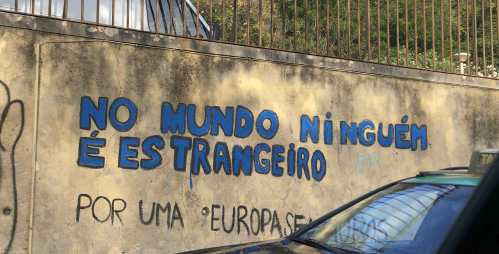 NO MUNDO NINGUÉM
É ESTRANGEIRO
POR UMA EUROPA SEM MUROS